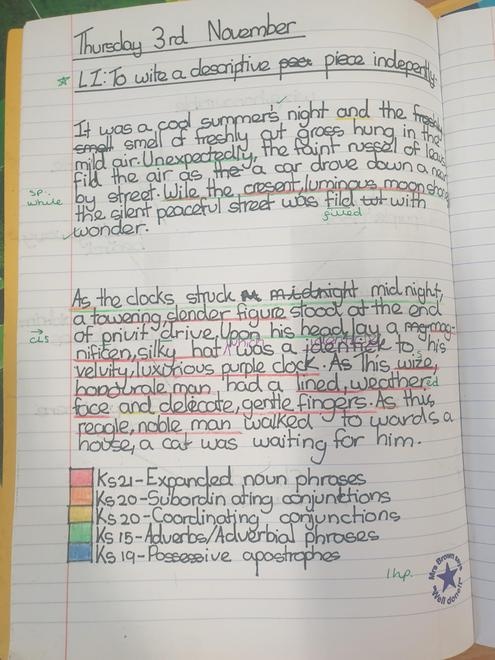 Thursday 3rd November
LI: To wite a descriptive peet piece indepently.
It was a cool summer's night and the freshly
smell smel of freshly cut grass hung in the
mild air. Unexpectedly, the faint russel of leaves
fild the air as the a car drove down a near
by street. Wile the cresent, luminous moon shone
sp. while
the silent peaceful street was fild wt with
filled
wonder.
As the clocks struck m midnight midnight,
a towering, slender figure stood at the end
of privit drive. Upon his head, lay a mag-
nificen, silky hat which was a identicle to his
velvity, luxurious purple clock. As this wize,
bondurale man had a lined, weathered
face and delecate, gentle fingers. As this
reagle, noble man walked to wards a
house, a cat was waiting for him.
Ks21-Expanded noun phrases
Ks20-Subordinating conjunctions
Ks20-Coordinating conjunctions
Ks15-Adverbs/Adverbial phrases
Ks19-Possessive apostrophes
1hp.
Mrs Brown says
Well done!